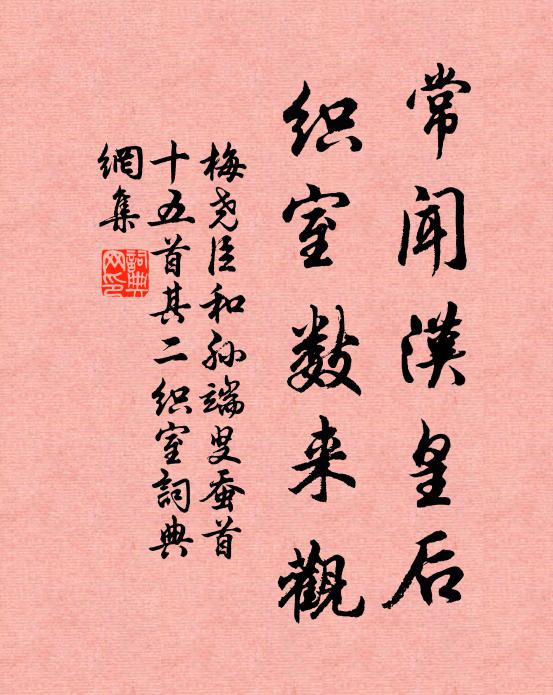 常闻汉皇后
织室数来观
梅尧臣和孙端叟蚕首
十五首其二织室词典
网集
词典网印